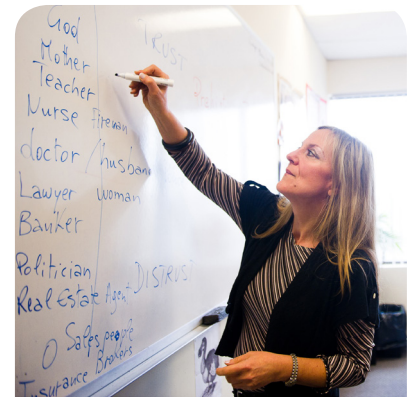 God
TRUST
Mother
Teacher
Nurse Fireman
doctor / husband
Lawyer woman
Banker
Politician
Real Estate Agent DISTRUST
Sales people
Insurance Brokers